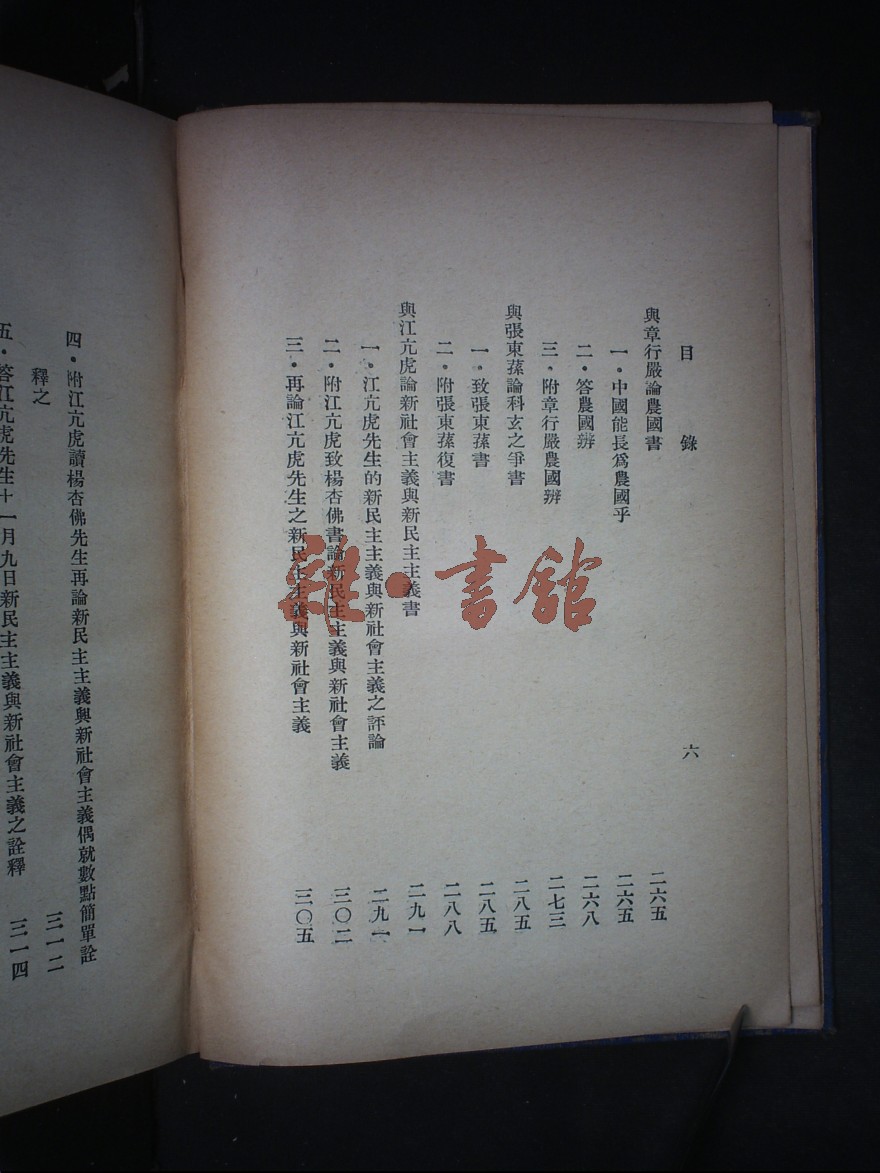 目錄 六
與章行嚴論農國書 二六五
一・中國能長爲農國乎 二六五
二・答農國辨 二六八
三・附章行嚴農國辨 二七三
與張東蓀論科玄之爭書 二八五
一・致張東蓀書 二八五
二・附張東蓀復書 二八八
與江亢虎論新社會主義與新民主主義書 二九一
一・江亢虎先生的新民主主義與新社會主義之評論 二九一
二・附江亢虎致楊杏佛書論新民主主義與新社會主義 三〇二
三・再論江亢虎先生之新民主主義與新社會主義 三〇五
四・附江亢虎讀楊杏佛先生再論新民主主義與新社會主義偶就數點簡單詮
釋之 三一二
五・答江亢虎先生十一月九日新民主主義與新社會主義之詮釋 三一四
雜・書館